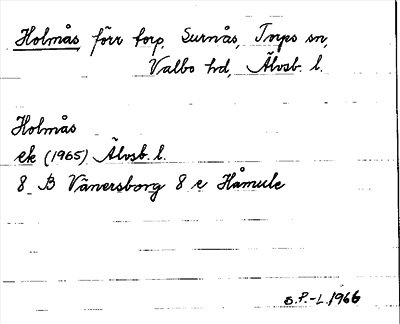 Holmås förr torp, Surnås, Torps sn,
Valbo hd, Älvsb. l.
Holmås
ek (1965) Älvsb. l.
8 B Vänersborg 8 e Håmule
B.P.-L. 1966